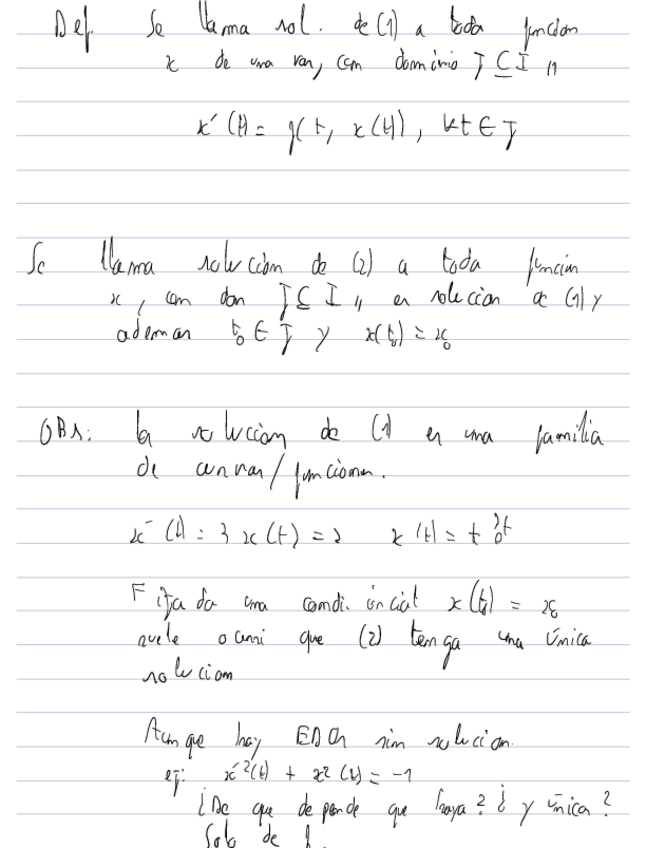 Def. Se llama sol. de (1) a toda función
x de una var, con dominio J ⊆ I //
x'(t) = f(t, x(t)), ∀t ∈ J
Se llama solución de (2) a toda función
x, con dom J ⊆ I // es solución de (1) y
ademas t₀ ∈ J y x(t₀) = x₀
OBS: la solución de (1) es una familia
de curvas/funciones.
x'(t) = 3x(t) =>
Fijada una condi. inicial x(t₀) = x₀
suele ocurrir que (2) tenga una única
solucion
Aunque hay EDOs sin solucion.
ej: x'²(t) + x²(t) = -1
¿De que depende que haya? ¿y única?
Solo de f.